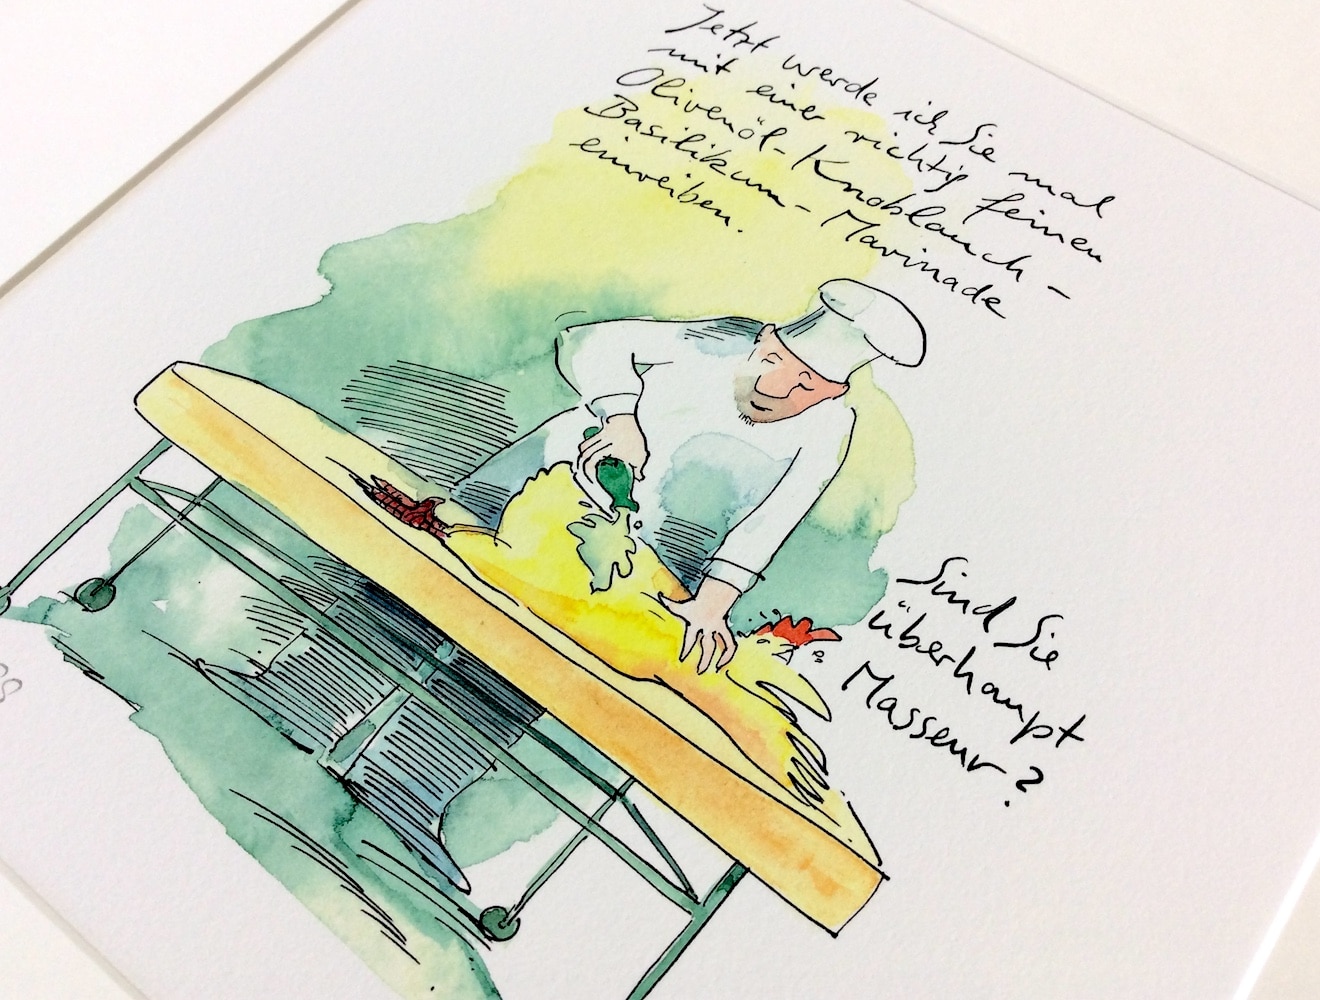 Jetzt werde ich Sie mal
mit einer richtig feinen
Olivenöl-Knoblauch-
Basilikum-Marinade
einreiben.
Sind Sie
überhaupt
Masseur?